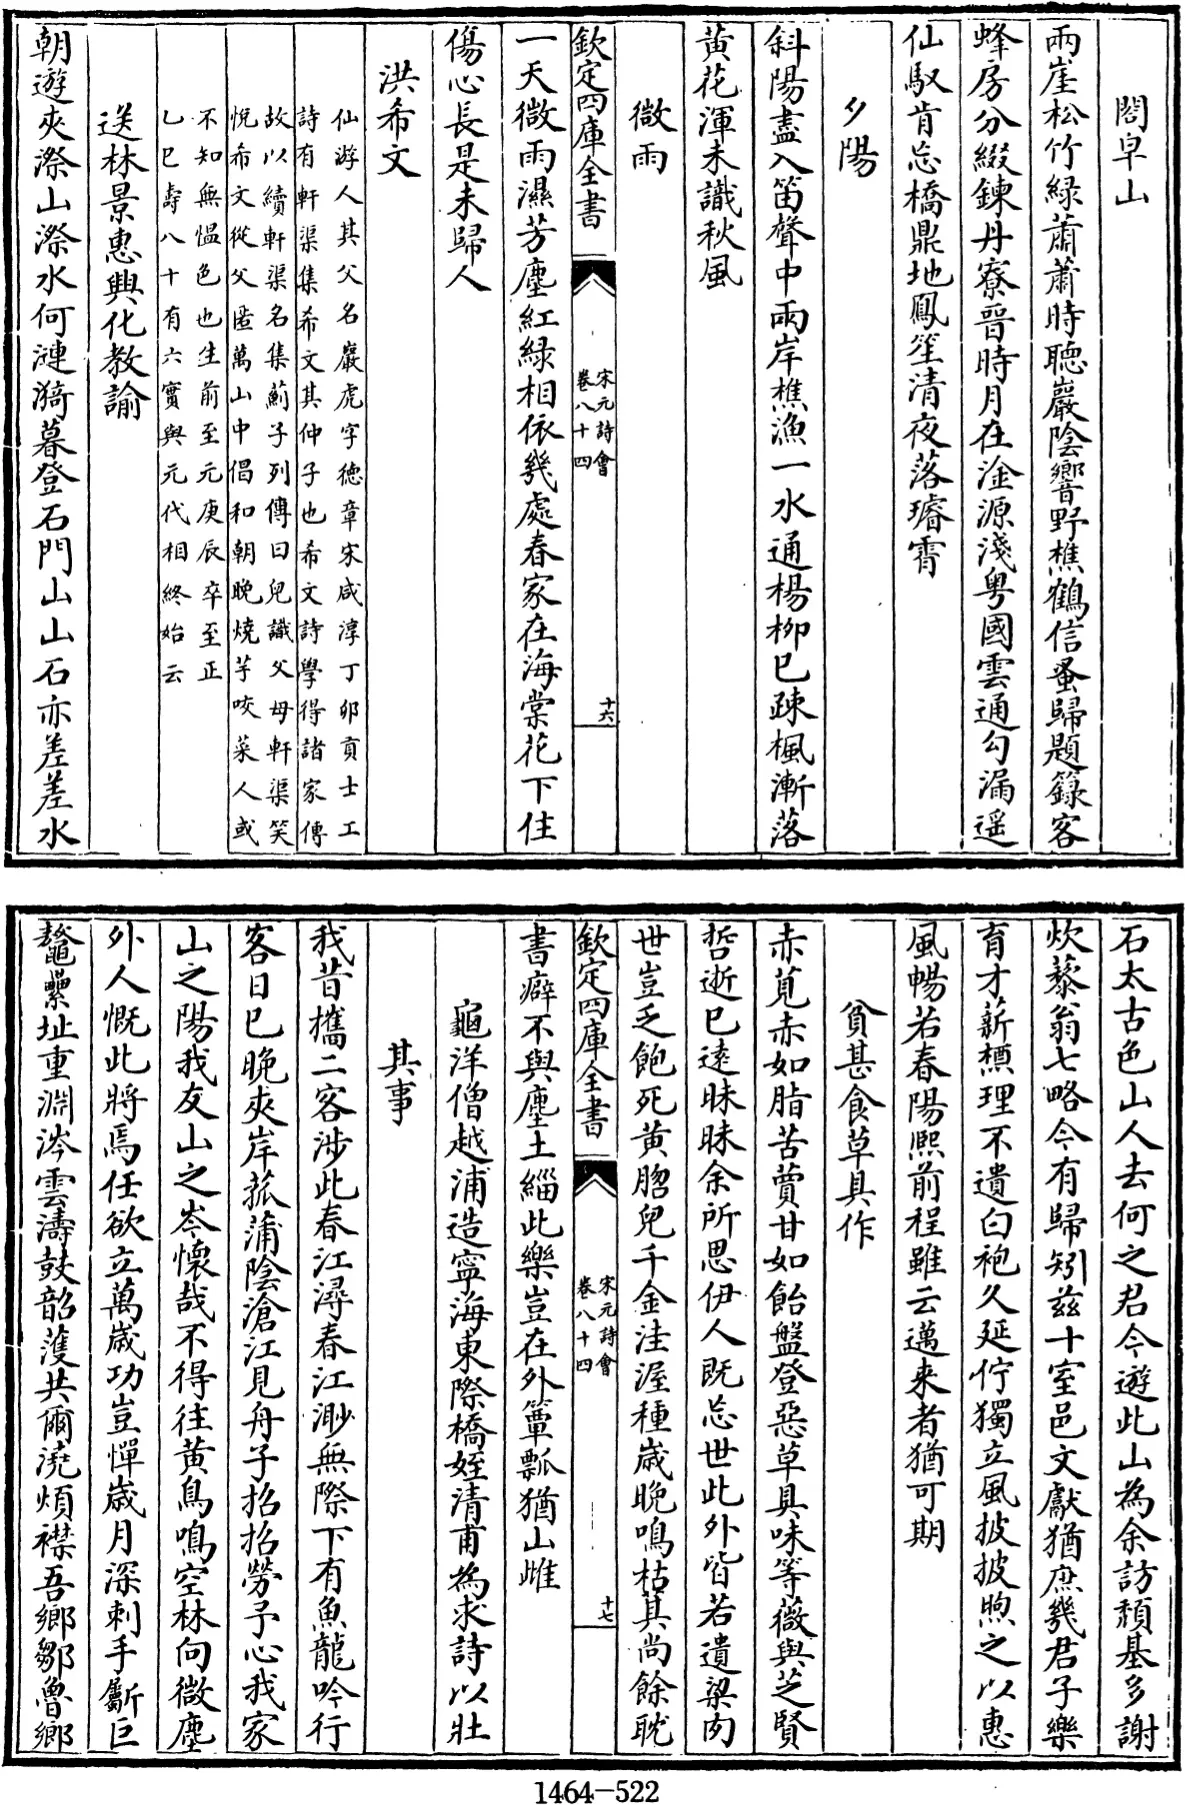 閤皁山
兩崖松竹緑蕭蕭時聽巖陰響野樵鶴信蚤歸題籙客
蜂房分綴鍊丹寮晉時月在淦源淺粤國雲通勾漏遥
仙馭肯忘橋鼎地鳳笙清夜落璿霄
夕陽
斜陽盡入笛聲中兩岸樵漁一水通楊柳已疎楓漸落
黄花渾未識秋風
微雨
欽定四庫全書
宋元詩會
卷八十四
十六
一天微雨濕芳塵紅緑相依幾處春家在海棠花下住
傷心長是未歸人
洪希文
仙游人其父名巖虎字德章宋咸淳丁卯貢士工
詩有軒渠集希文其仲子也希文詩學得諸家傳
故以續軒渠名集薊子列傳曰兒識父母軒渠笑
悦希文從父匿萬山中倡和朝晚燒芋咬菜人或
不知無愠色也生前至元庚辰卒至正
乙巳壽八十有六實與元代相終始云
送林景惠興化教諭
朝遊夾漈山漈水何漣漪暮登石門山山石亦差差水
石太古色山人去何之君今遊此山為余訪頽基多謝
炊藜翁七略今有歸矧兹十室邑文獻猶庶幾君子樂
育才薪槱理不遺白袍久延佇獨立風披披煦之以惠
風暢若春陽熙前程雖云邁来者猶可期
貧甚食草具作
赤莧赤如脂苦蕒甘如飴盤登惡草具味等薇與芝賢
哲逝已遠昧昧余所思伊人既忘世此外皆若遺粱肉
世豈乏飽死黄䐉兒千金洼渥種歳晚鳴枯萁尚餘耽
欽定四庫全書
宋元詩會
卷八十四
十七
書癖不與塵土緇此樂豈在外簞瓢猶山雌
龜洋僧越浦造寧海東際橋姪清甫為求詩以壯
其事
我昔攜二客涉此春江潯春江渺無際下有魚龍吟行
客日已晚夾岸菰蒲陰滄江見舟子招招勞予心我家
山之陽我友山之岑懷哉不得往黄鳥鳴空林向微塵
外人慨此將焉任欲立萬歳功豈憚歳月深刺手斸巨
鼇纍址重淵涔雲濤鼓韶頀共爾澆煩襟吾鄉鄒魯鄉
1464-522